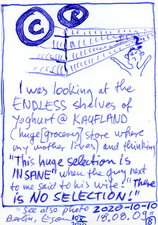 C R
I was looking at the
ENDLESS shelves of
yoghurt @ KAUFLAND
(huge (grocery) store where
my mother lives) and thinking
"This huge selection is
INSANE" when the guy next
to me said to his wife: "There
is NO SELECTION!"
"See also photo 2020-10-10
Berlin, 18.08.09